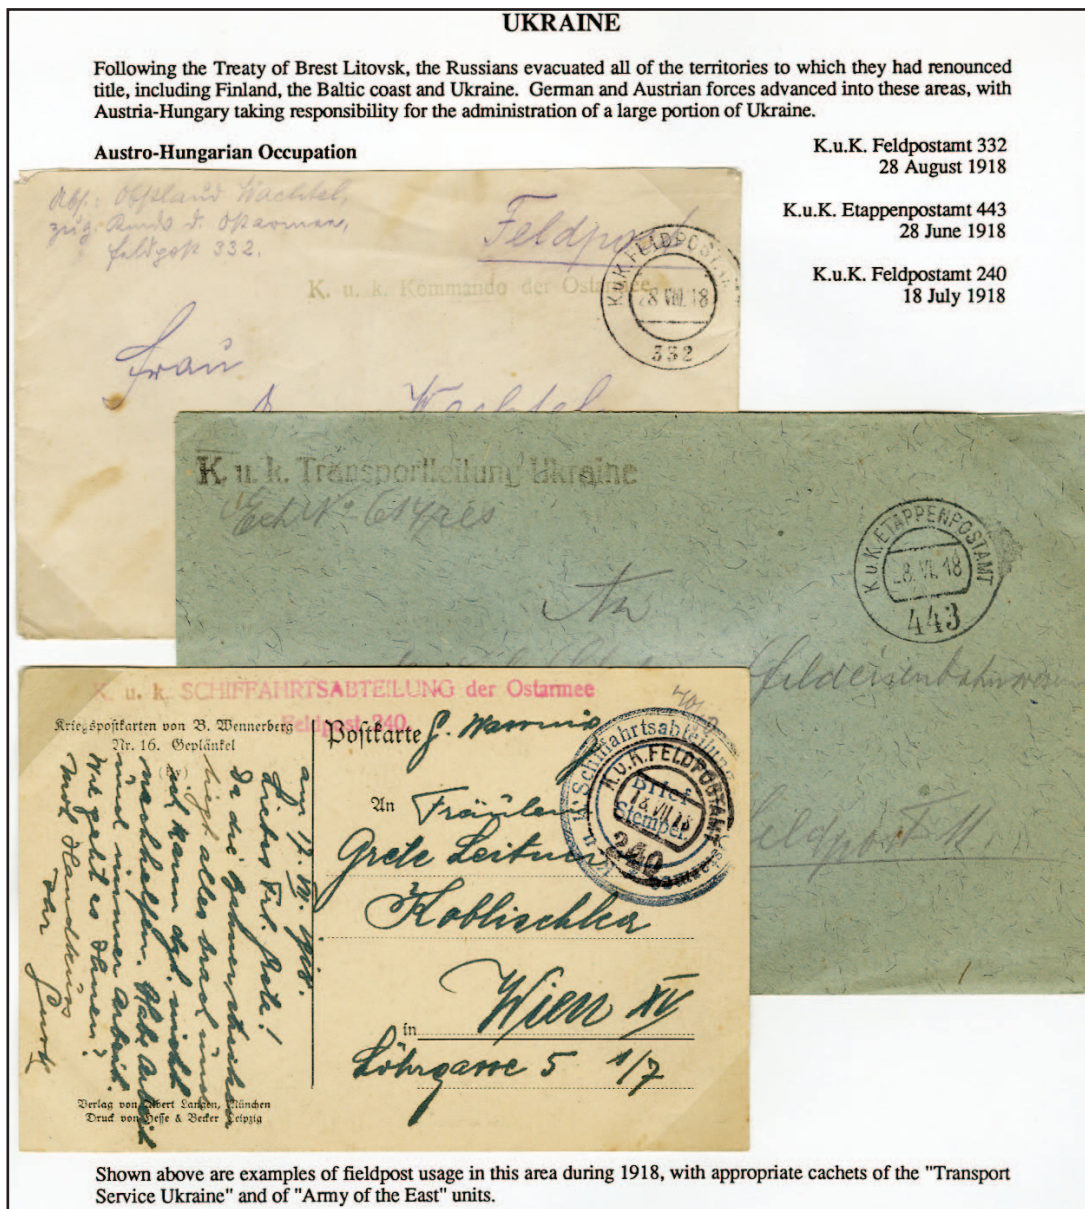 UKRAINE
Following the Treaty of Brest Litovsk, the Russians evacuated all of the territories to which they had renounced
title, including Finland, the Baltic coast and Ukraine. German and Austrian forces advanced into these areas, with
Austria-Hungary taking responsibility for the administration of a large portion of Ukraine.
Austro-Hungarian Occupation
K.u.K. Feldpostamt 332
28 August 1918
K.u.K. Etappenpostamt 443
28 June 1918
K.u.K. Feldpostamt 240
18 July 1918
Wachtel,
feldpost 332.
Feldpost
K. u. k. Kommando der Ostarmee
K.u.K. FELDPOST
28 VIII 18
332
Frau
Wachtel
K. u. k. Transportleitung Ukraine
K.u.K. ETAPPENPOSTAMT
28. VI. 18
443
An
K. u. k. SCHIFFAHRTSABTEILUNG der Ostarmee
Feldpost 240
Kriegspostkarten von B. Wennerberg
Nr. 16. Geplänkel
Postkarte
K. u. k. Schiffahrtsabteilung
Brief
Stempel
K.u.K. FELDPOSTAMT
18 VII 18
240
An
Fräulein
Grete Leitner
Koblischka
in
Wien XV
Löhrgasse 5 1/7
Da die
alles
ich kann
nachhelfen. Habe Arbeit
und immer Arbeit.
Wie geht es Ihnen?
Mit Handkuss
Verlag von Albert Langen, München
Druck von Hesse & Becker Leipzig
Shown above are examples of fieldpost usage in this area during 1918, with appropriate cachets of the "Transport
Service Ukraine" and of "Army of the East" units.